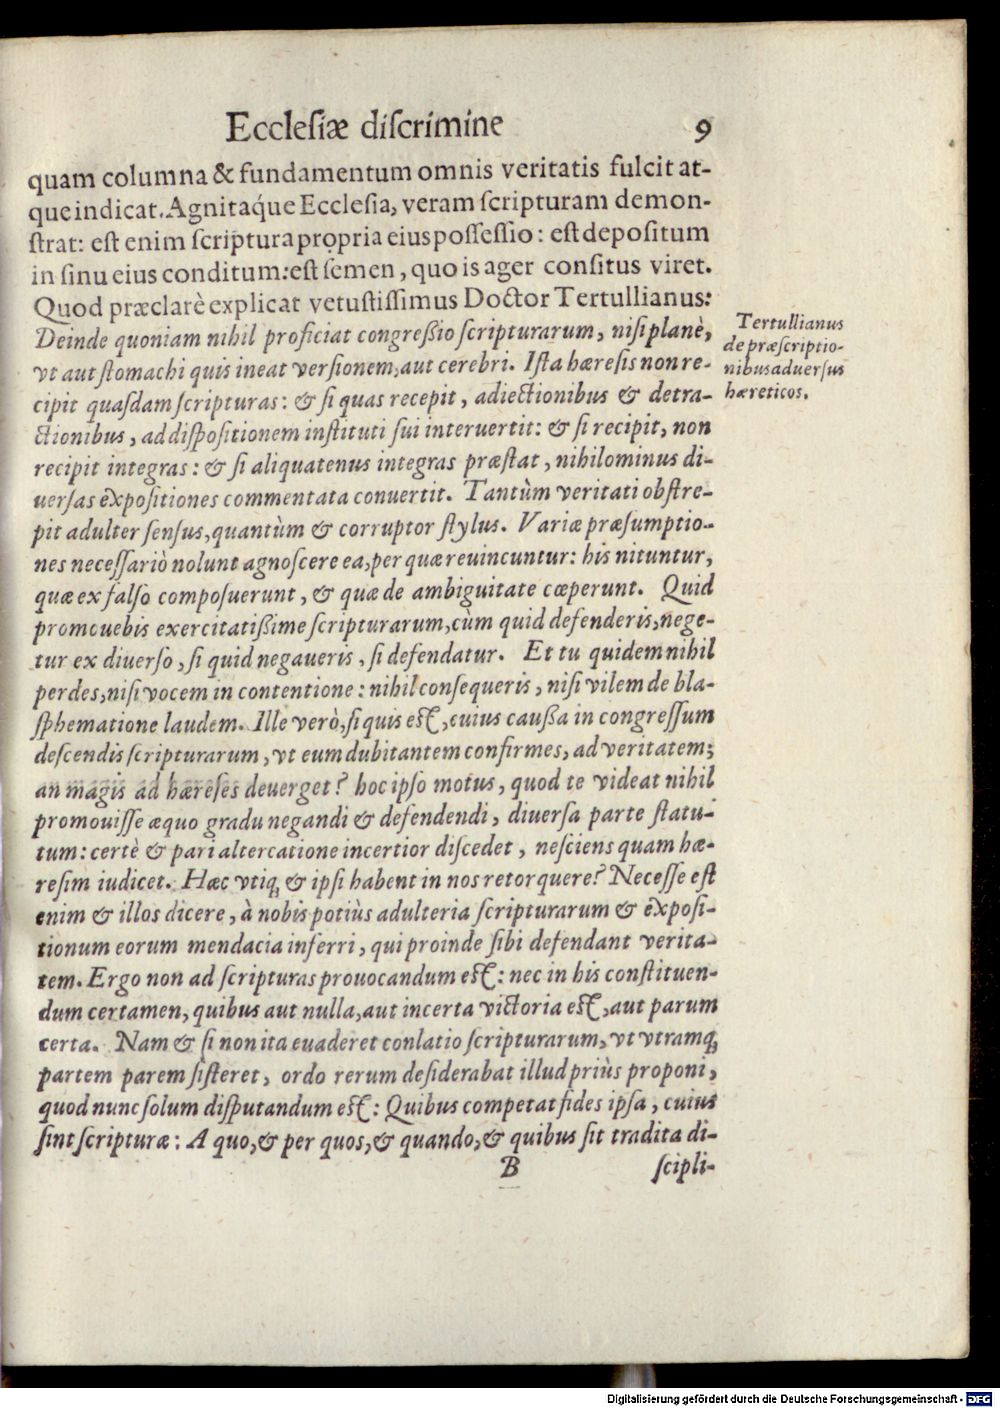 Ecclesiæ diſcrimine 9
quam columna & fundamentum omnis veritatis fulcit at-
que indicat. Agnitáque Eccleſia, veram ſcripturam demon-
ſtrat: eſt enim ſcriptura propria eius poſſeſſio: eſt depoſitum
in ſinu eius conditum: eſt ſemen, quo is ager conſitus viret.
Quod præclarè explicat vetuſtiſſimus Doctor Tertullianus:
Deinde quoniam nihil proficiat congreßio ſcripturarum, niſi planè,
vt aut ſtomachi quis ineat verſionem, aut cerebri. Iſta hæreſis non re-
cipit quaſdam ſcripturas: & ſi quas recepit, adiectionibus & detra-
ctionibus, ad diſpoſitionem inſtituti ſui interuertit: & ſi recipit, non
recipit integras: & ſi aliquatenus integras præſtat, nihilominus di-
uerſas expoſitiones commentata conuertit. Tantùm veritati obſtre-
pit adulter ſenſus, quantùm & corruptor ſtylus. Variæ præſumptio-
nes neceſſariò nolunt agnoſcere ea, per quæ reuincuntur: his nituntur,
quæ ex falſo compoſuerunt, & quæ de ambiguitate cœperunt. Quid
promouebis exercitatißime ſcripturarum, cùm quid defenderis, nege-
tur ex diuerſo, ſi quid negaueris, ſi defendatur. Et tu quidem nihil
perdes, niſi vocem in contentione: nihil conſequeris, niſi vilem de bla-
ſphematione laudem. Ille verò, ſi quis eſt, cuius caußa in congreſſum
deſcendis ſcripturarum, vt eum dubitantem confirmes, ad veritatem;
an magis ad hæreſes deuerget? hoc ipſo motus, quod te videat nihil
promouiſſe æquo gradu negandi & defendendi, diuerſa parte ſtatu-
tum: certè & pari altercatione incertior diſcedet, neſciens quam hæ-
reſim iudicet. Hæc vtiq; & ipſi habent in nos retorquere? Neceſſe eſt
enim & illos dicere, à nobis potiùs adulteria ſcripturarum & expoſi-
tionum eorum mendacia inferri, qui proinde ſibi defendant verita-
tem. Ergo non ad ſcripturas prouocandum eſt: nec in his conſtituen-
dum certamen, quibus aut nulla, aut incerta victoria eſt, aut parum
certa. Nam & ſi non ita euaderet conlatio ſcripturarum, vt vtramq;
partem parem ſiſteret, ordo rerum deſiderabat illud priùs proponi,
quod nunc ſolum diſputandum eſt: Quibus competat fides ipſa, cuius
ſint ſcripturæ: A quo, & per quos, & quando, & quibus ſit tradita di-
B ſcipli-
Tertullianus
de præſcriptio-
nibus aduerſus
hæreticos.
Digitalisierung gefördert durch die Deutsche Forschungsgemeinschaft - DFG